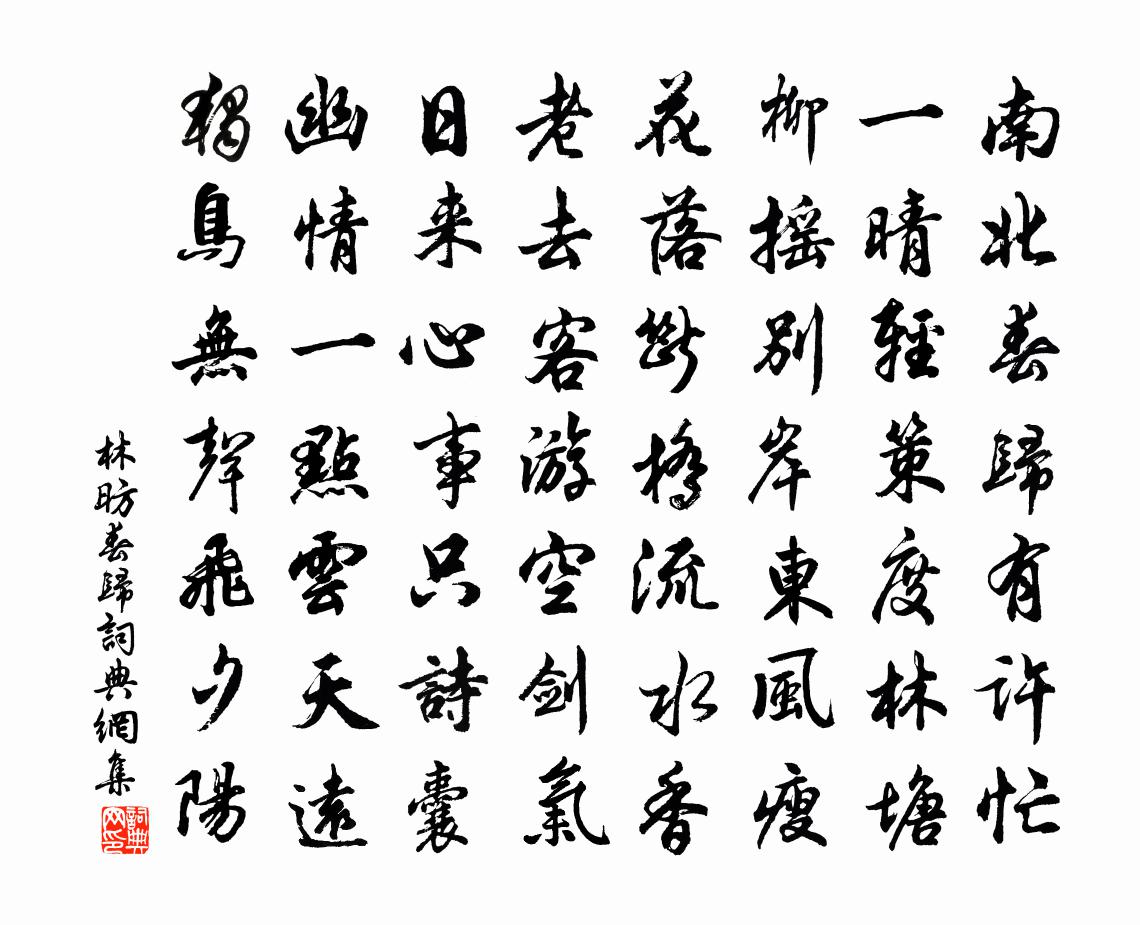 南北春歸有許忙
一晴輕策度林塘
柳搖別岸東風瘦
花落斷橋流水香
老去客游空劍氣
日来心事只詩囊
幽情一點雲天遠
獨鳥無聲飛夕陽
林昉春歸詞典網集
詞典网印